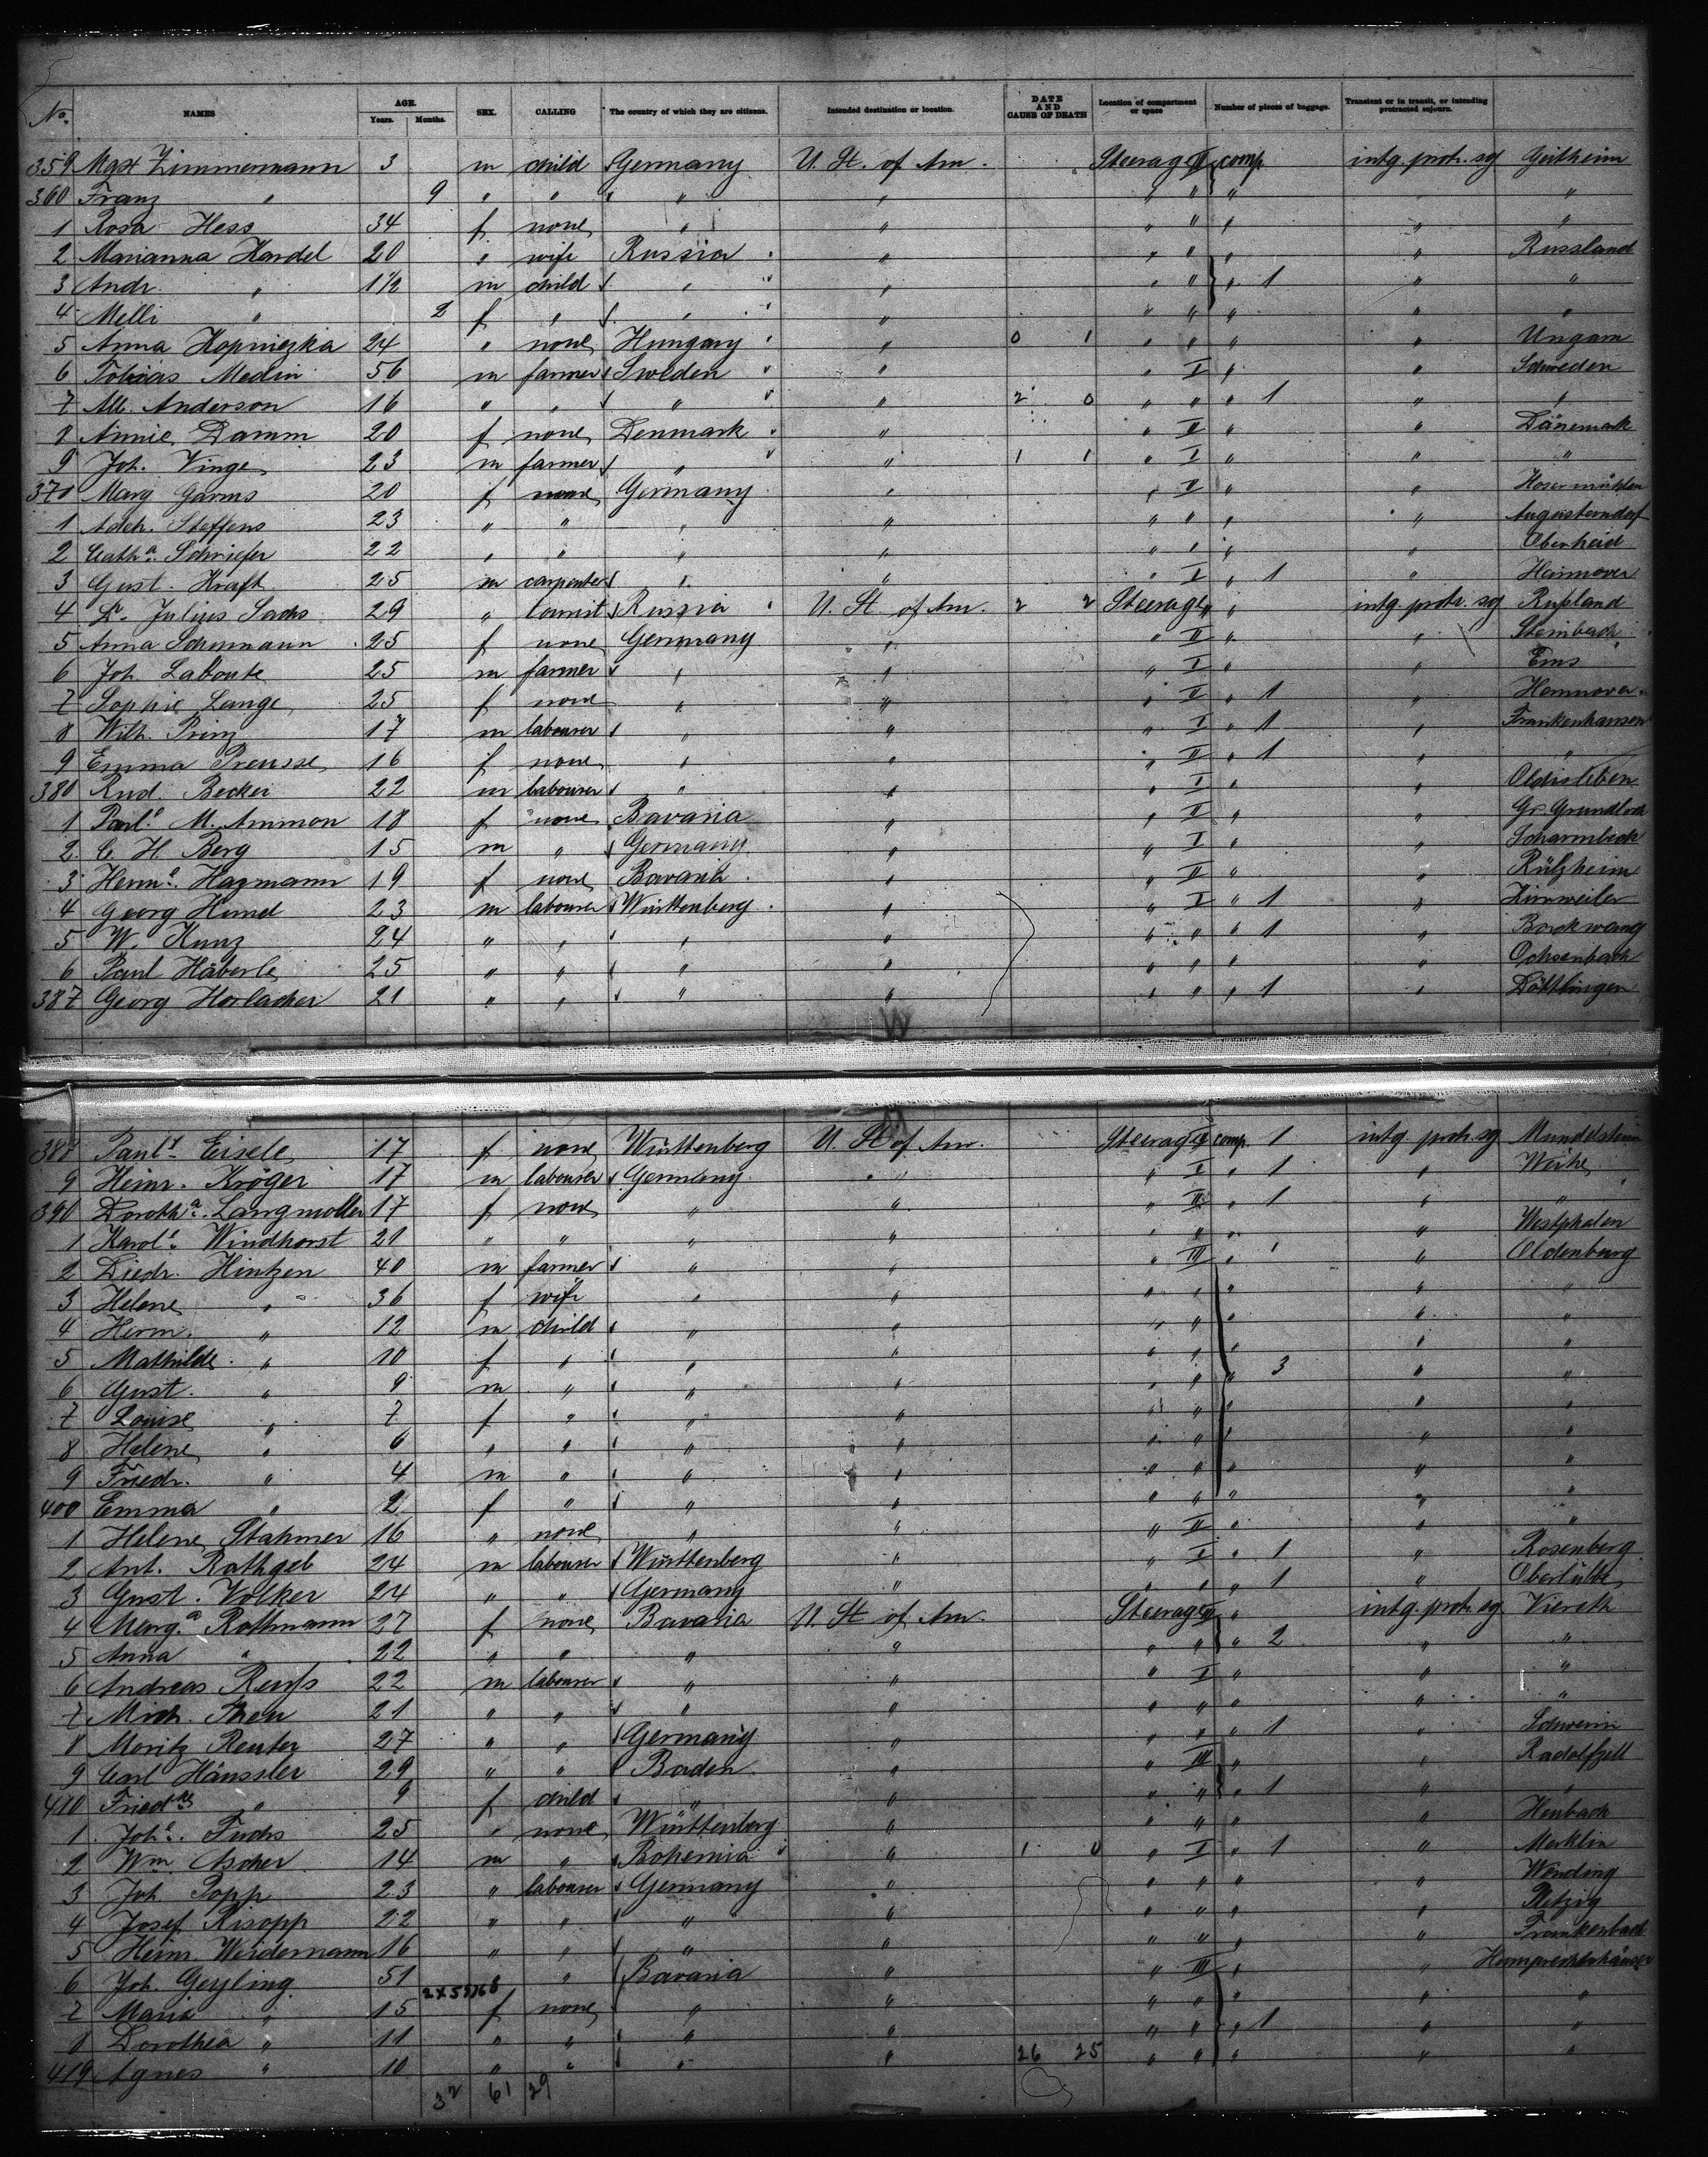 No. NAMES AGE. Years. Months. SEX. CALLING The country of which they are citizens. Intended destination or location. DATE AND CAUSE OF DEATH Location of compartment or space Number of pieces of baggage. Transient or in transit, or intending protracted sojourn.
359 Max Zimmermann 3 m child Germany U. St. of Am. Steerage II comp. intg. protr. soj Geitheim
360 Franz " 9 " " " " " " " "
1 Rosa Hess 34 f none " " " " " " "
2 Marianna Kardel 20 " wife Russia " " " " " Russland
3 Andr. " 1½ m child " " " " " 1 " "
4 Melli " 2 f " " " " " " " "
5 Anna Kopniezka 24 " none Hungary " 0 1 " " " " Ungarn
6 Tobias Medin 56 m farmer Sweden " " I " " Schweden
7 Alb. Anderson 16 " " " " 2 0 " " " 1 " "
8 Annie Damm 20 f none Denmark " " II " " Dänemark
9 Joh. Vinge 23 m farmer " " 1 1 " I " " "
370 Marg Garms 20 f none Germany " " II " "
1 Adeh. Steffens 23 " " " " " " " " Augustendorf
2 Cath.a Schriefer 22 " " " " " " " " Oberheid
3 Gust. Kraft 25 m carpenter " " " I " 1 " Hannover
4 Dr. Julius Sachs 29 " tourist Russia U. St. of Am. 2 2 Steerage " " intg. protr. soj Rußland
5 Anna Schumann 25 f none Germany " " II " " Steinbach
6 Joh. Laboute 25 m farmer " " " I " " Ems
7 Sophie Lange 25 f none " " " II " 1 " Hannover
8 Wilh. Prinz 17 m labourer " " " I " 1 " Frankenhausen
9 Emma Preusse 16 f none " " " II " 1 " "
380 Rud. Becker 22 m labourer " " " I " " Oldisleben
1 Paul.e M. Ammon 18 f none Bavaria " " II " " Gr. Grundloch
2 C. H. Berg 15 m " Germany " " I " " Scharmbeck
3 Henn.e Hagmann 19 f none Bavaria " " II " " Rülzheim
4 Georg Hund 23 m labourer Württenberg " " I " 1 "
5 W. Kunz 24 " " " " " " " 1 "
6 Paul Häberle 25 " " " " " " " " Ochsenbach
387 Georg Horlacher 21 " " " " " " " 1 " Döttlingen
W
388 Paul.e Eisele 17 f none Württenberg U. St of Am. Steerage II comp. 1 intg. protr. soj
9 Heinr. Kröger 17 m labourer Germany " " I " 1 "
390 Doroth.a Langmoller 17 f none " " " II " 1 " "
1 Karol.e Windhorst 21 " " " " " " " " Westphalen
2 Diedr. Hintzen 40 m farmer " " " III " " Oldenburg
3 Helene " 36 f wife " " " " " " "
4 Herm. " 12 m child " " " " " " "
5 Mathilde " 10 f " " " " " " " "
6 Gust. " 9 m " " " " " " 3 " "
7 Louise " 7 f " " " " " " " "
8 Helene " 6 " " " " " " " " "
9 Friedr. " 4 m " " " " " " " "
400 Emma " 2 f " " " " " " " "
1 Helene Stahmer 16 " none " " " II " " "
2 Ant. Rathgeb 24 m labourer Württenberg " " I " 1 " Rosenberg
3 Gust. Volker 24 " " Germany " " " " 1 " Oberlübbe
4 Marg.a Rothmann 27 f none Bavaria U. St of Am. Steerage II " intg. protr. soj. Viereth
5 Anna " 22 " " " " " " " 2 " "
6 Andreas Reuss 22 m labourer " " " I " " "
7 Mich. Then 21 " " " " " " " " "
8 Moritz Reuter 27 " " Germany " " " " 1 " Schwerin
9 Carl Hänssler 29 " " Baden " " III " " Radolfzell
410 Fried.ke " 9 f child " " " " " 1 " "
1 Joh.e Fuchs 25 " none Württenberg " " " " " Heubach
2 Wm Ascher 14 m " Bohemia " 1 0 " I " 1 " Merklin
3 Joh Popp 23 " labourer Germany " " " " " Wending
4 Josef Risopp 22 " " " " " " " " Pletzig
5 Heinr. Weidemann 16 " " " " " " " " Frankenbach
6 Joh. Geyling 51 " Bavaria " " III " "
7 Maria " 15 f none " " " " " " "
8 Dorothea " 11 " " " " " " " 1 " "
419 Agnes " 10 " " " " 26 25 " " " " "
32 61 29